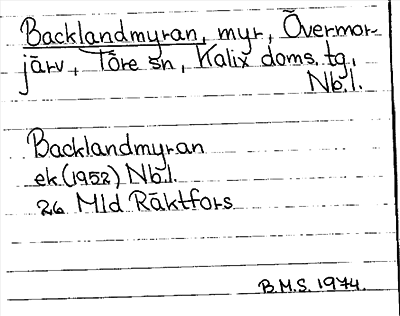 Backlandmyran, myr, Övermor-
järv, Töre sn, Kalix doms. tg.
Nb.l.
Backlandmyran
ek. (1952) Nb.l.
26 Mld Räktfors
B.M.S. 1974.